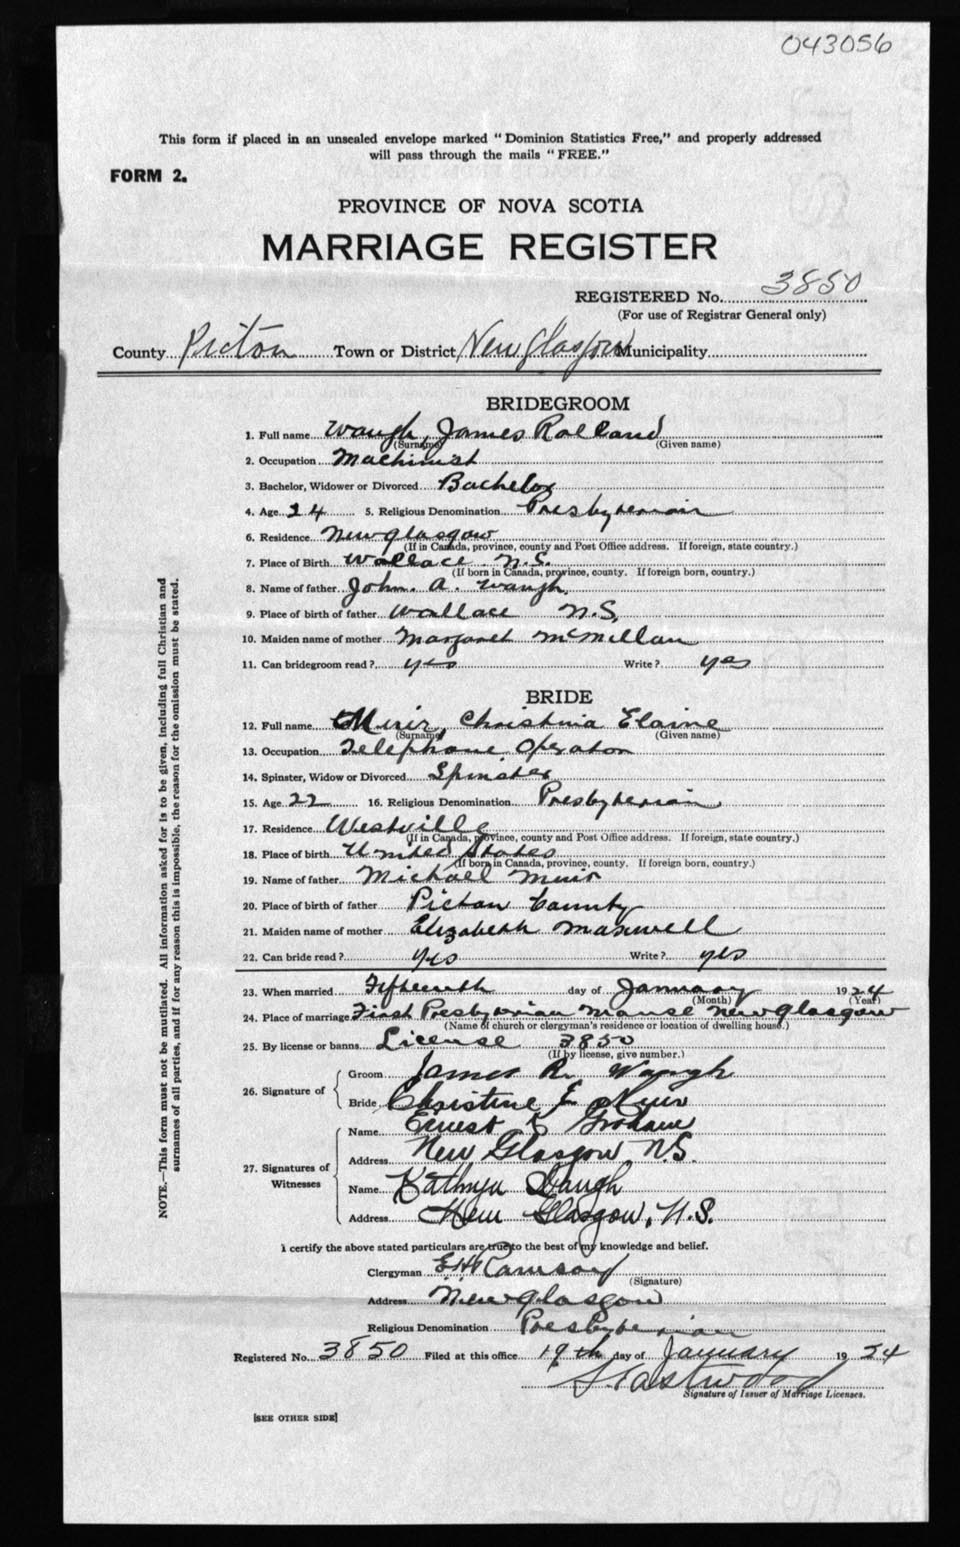 043056
This form if placed in an unsealed envelope marked "Dominion Statistics Free," and properly addressed
will pass through the mails "FREE."
FORM 2.
PROVINCE OF NOVA SCOTIA
MARRIAGE REGISTER
REGISTERED No. 3850
(For use of Registrar General only)
County Pictou Town or District New Glasgow Municipality
BRIDEGROOM
1. Full name Waugh, James Rolland
(Surname) (Given name)
2. Occupation Machinist
3. Bachelor, Widower or Divorced Bachelor
4. Age 24 5. Religious Denomination Presbyterian
6. Residence New Glasgow
(If in Canada, province, county and Post Office address. If foreign, state country.)
7. Place of Birth Wallace N.S.
(If born in Canada, province, county. If foreign born, country.)
8. Name of father John. A. Waugh.
9. Place of birth of father Wallace N.S.
10. Maiden name of mother Margaret McMillan
11. Can bridegroom read? yes Write? yes
BRIDE
12. Full name Muir, Christina Elaine
(Surname) (Given name)
13. Occupation Telephone Operator
14. Spinster, Widow or Divorced Spinster
15. Age 22 16. Religious Denomination Presbyterian
17. Residence Westville
(If in Canada, province, county and Post Office address. If foreign, state country.)
18. Place of birth United States
(If born in Canada, province, county. If foreign born, country.)
19. Name of father Michael Muir
20. Place of birth of father Pictou County
21. Maiden name of mother Elizabeth Maxwell
22. Can bride read? yes Write? yes
23. When married Fifteenth day of January 1924
(Month) (Year)
24. Place of marriage First Presbyterian Manse New Glasgow
(Name of church or clergyman's residence or location of dwelling house.)
25. By license or banns License 3850
(If by license, give number.)
26. Signature of
Groom James R. Waugh
Bride Christine E Muir
27. Signatures of Witnesses
Name Ernest Graham
Address New Glasgow N.S.
Name Kathryn Waugh
Address New Glasgow, N.S.
I certify the above stated particulars are true to the best of my knowledge and belief.
Clergyman E H Ramsay
(Signature)
Address New Glasgow
Religious Denomination Presbyterian
Registered No. 3850 Filed at this office 19th day of January 1924
Eastwood
Signature of Issuer of Marriage Licenses.
[SEE OTHER SIDE]
NOTE.—This form must not be mutilated. All information asked for is to be given, including full Christian and
surnames of all parties, and if for any reason this is impossible, the reason for the omission must be stated.